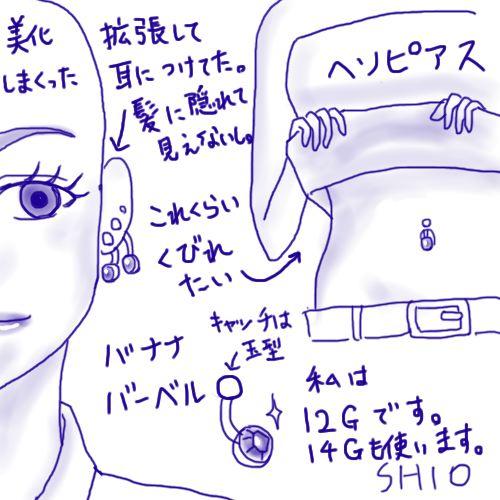 美化
しまくった
拡張して
耳につけてた。
髪に隠れて
見えないし。
ヘソピアス
これくらい
くびれ
たい
バナナ
バーベル
キャッチは
玉型
私は
12Gです。
14Gも使います。
SHIO